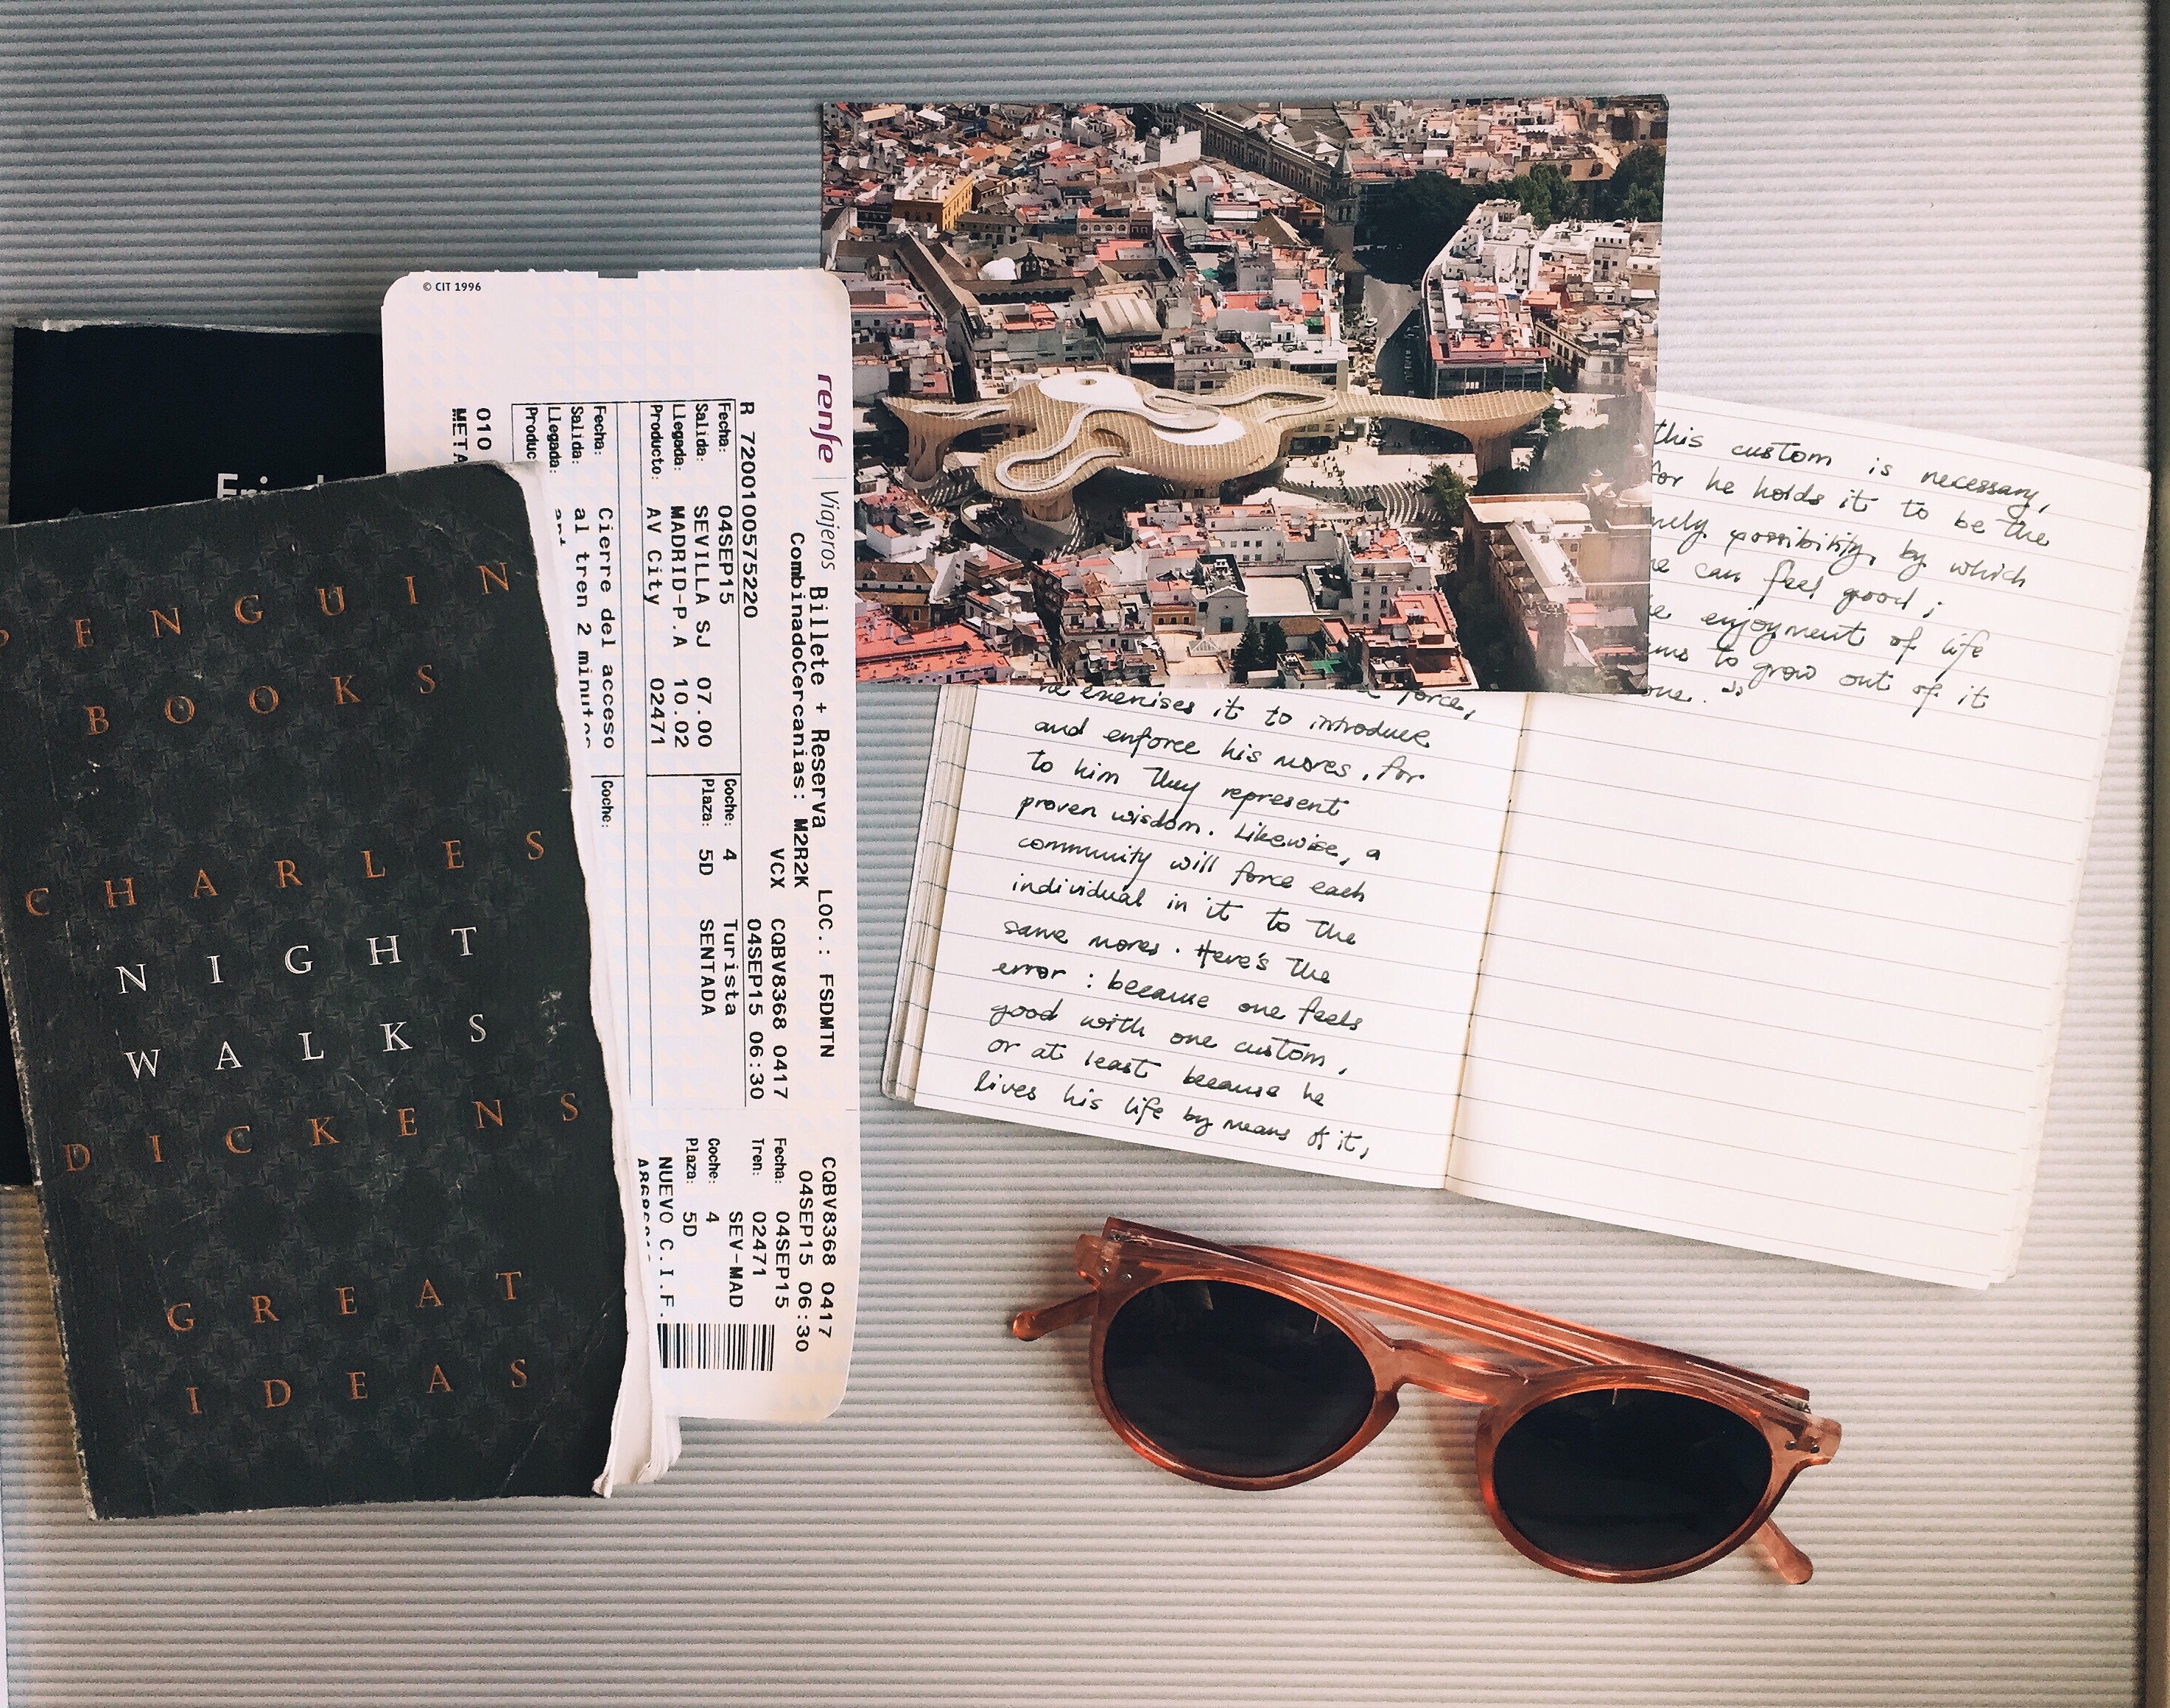 PENGUIN
BOOKS
CHARLES
NIGHT
WALKS
DICKENS
GREAT
IDEAS
© CIT 1996
renfe Viajeros Billete + Reserva LOC.: FSDMTN
CombinadoCercanias: M2R2K
VCX CQBV8368 0417
R 7200100575220 04SEP15 06:30
Fecha: 04SEP15 Coche: 4 Turista
Salida: SEVILLA SJ 07.00 Plaza: 5D SENTADA
Llegada: MADRID-P.A 10.02
Producto: AV City 02471
Fecha: Cierre del acceso Coche:
Salida: al tren 2 minutos
Llegada:
Produc
010
META
CQBV8368 0417
04SEP15 06:30
Fecha: 04SEP15
Tren: 02471
SEV-MAD
Coche: 4
Plaza: 5D
NUEVO C.I.F.
force,
he exercises it to introduce
and enforce his mores, for
to him they represent
proven wisdom. Likewise, a
community will force each
individual in it to the
same mores. Here's the
error: because one feels
good with one custom,
or at least because he
lives his life by means of it,
this custom is necessary,
for he holds it to be the
possibility by which
can feel good;
enjoyment of life
to grow out of it
one.